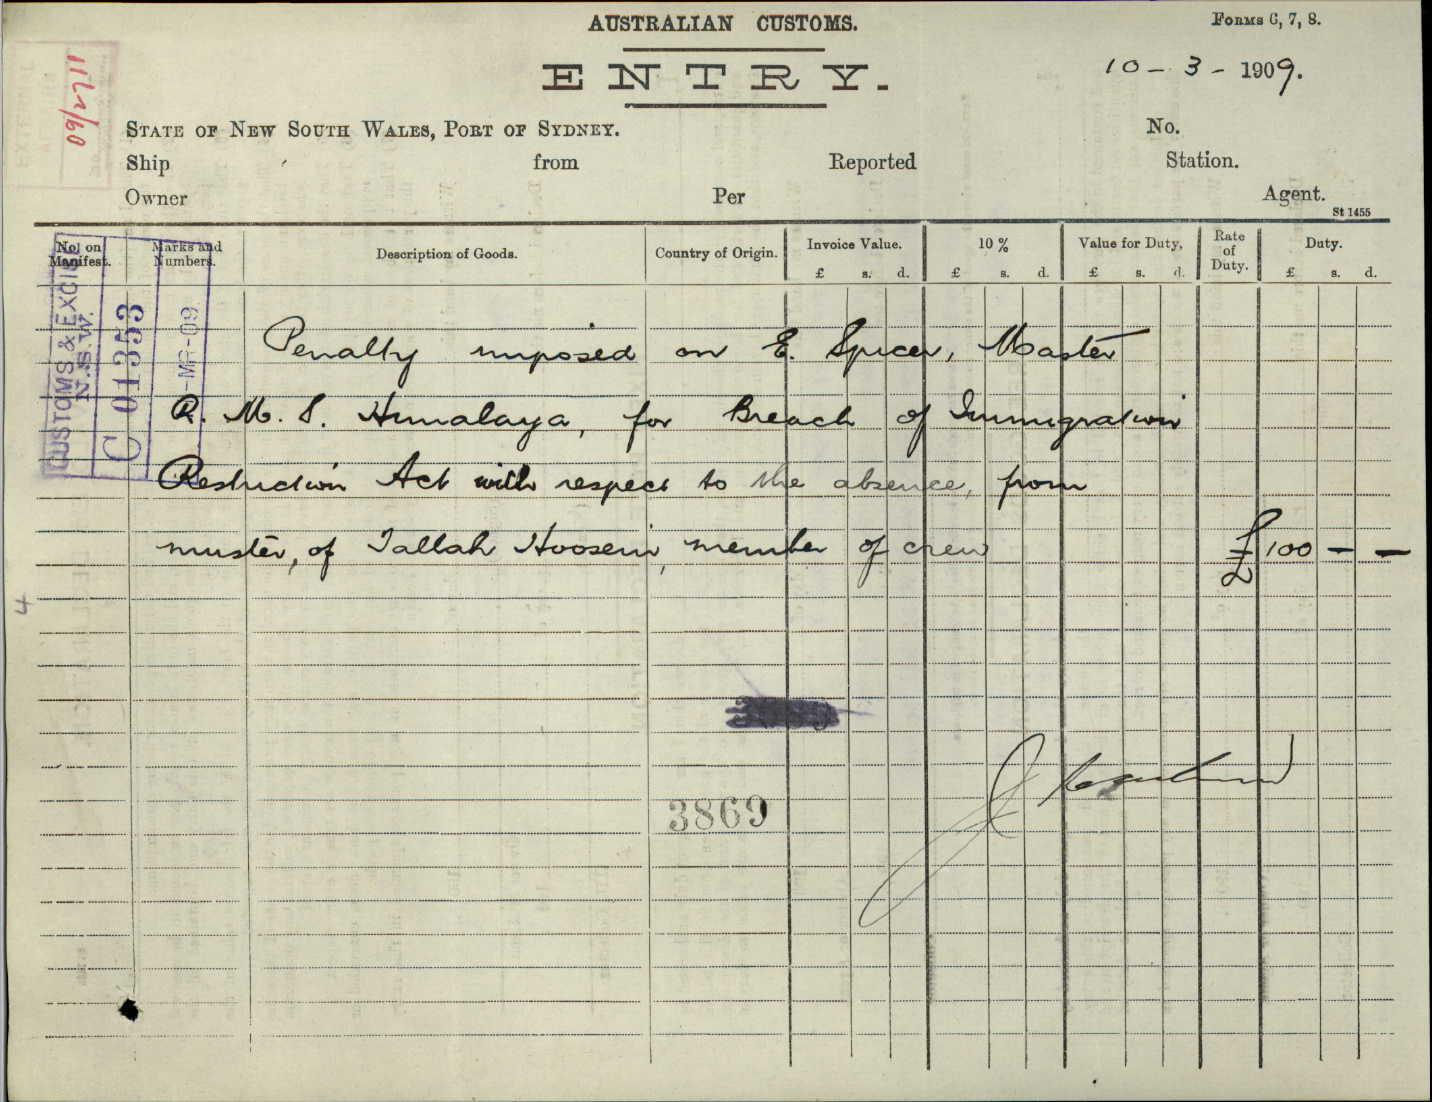 AUSTRALIAN CUSTOMS.
FORMS 6, 7, 8.
ENTRY.
10 - 3 - 1909.
STATE OF NEW SOUTH WALES, PORT OF SYDNEY.
No.
Ship from Reported Station.
Owner Per Agent.
St 1455
No. on Manifest. Marks and Numbers. Description of Goods. Country of Origin. Invoice Value. 10 % Value for Duty. Rate of Duty. Duty.
£ s. d. £ s. d. £ s. d. £ s. d.
CUSTOMS & EXCISE
N.S.W.
C 01353
-MR-09
Penalty imposed on E. Spicer, Master
R. M. S. Himalaya, for Breach of Immigration
Restriction Act with respect to the absence, from
muster, of Tallah Hoosein, member of crew £100 - -
3869
4